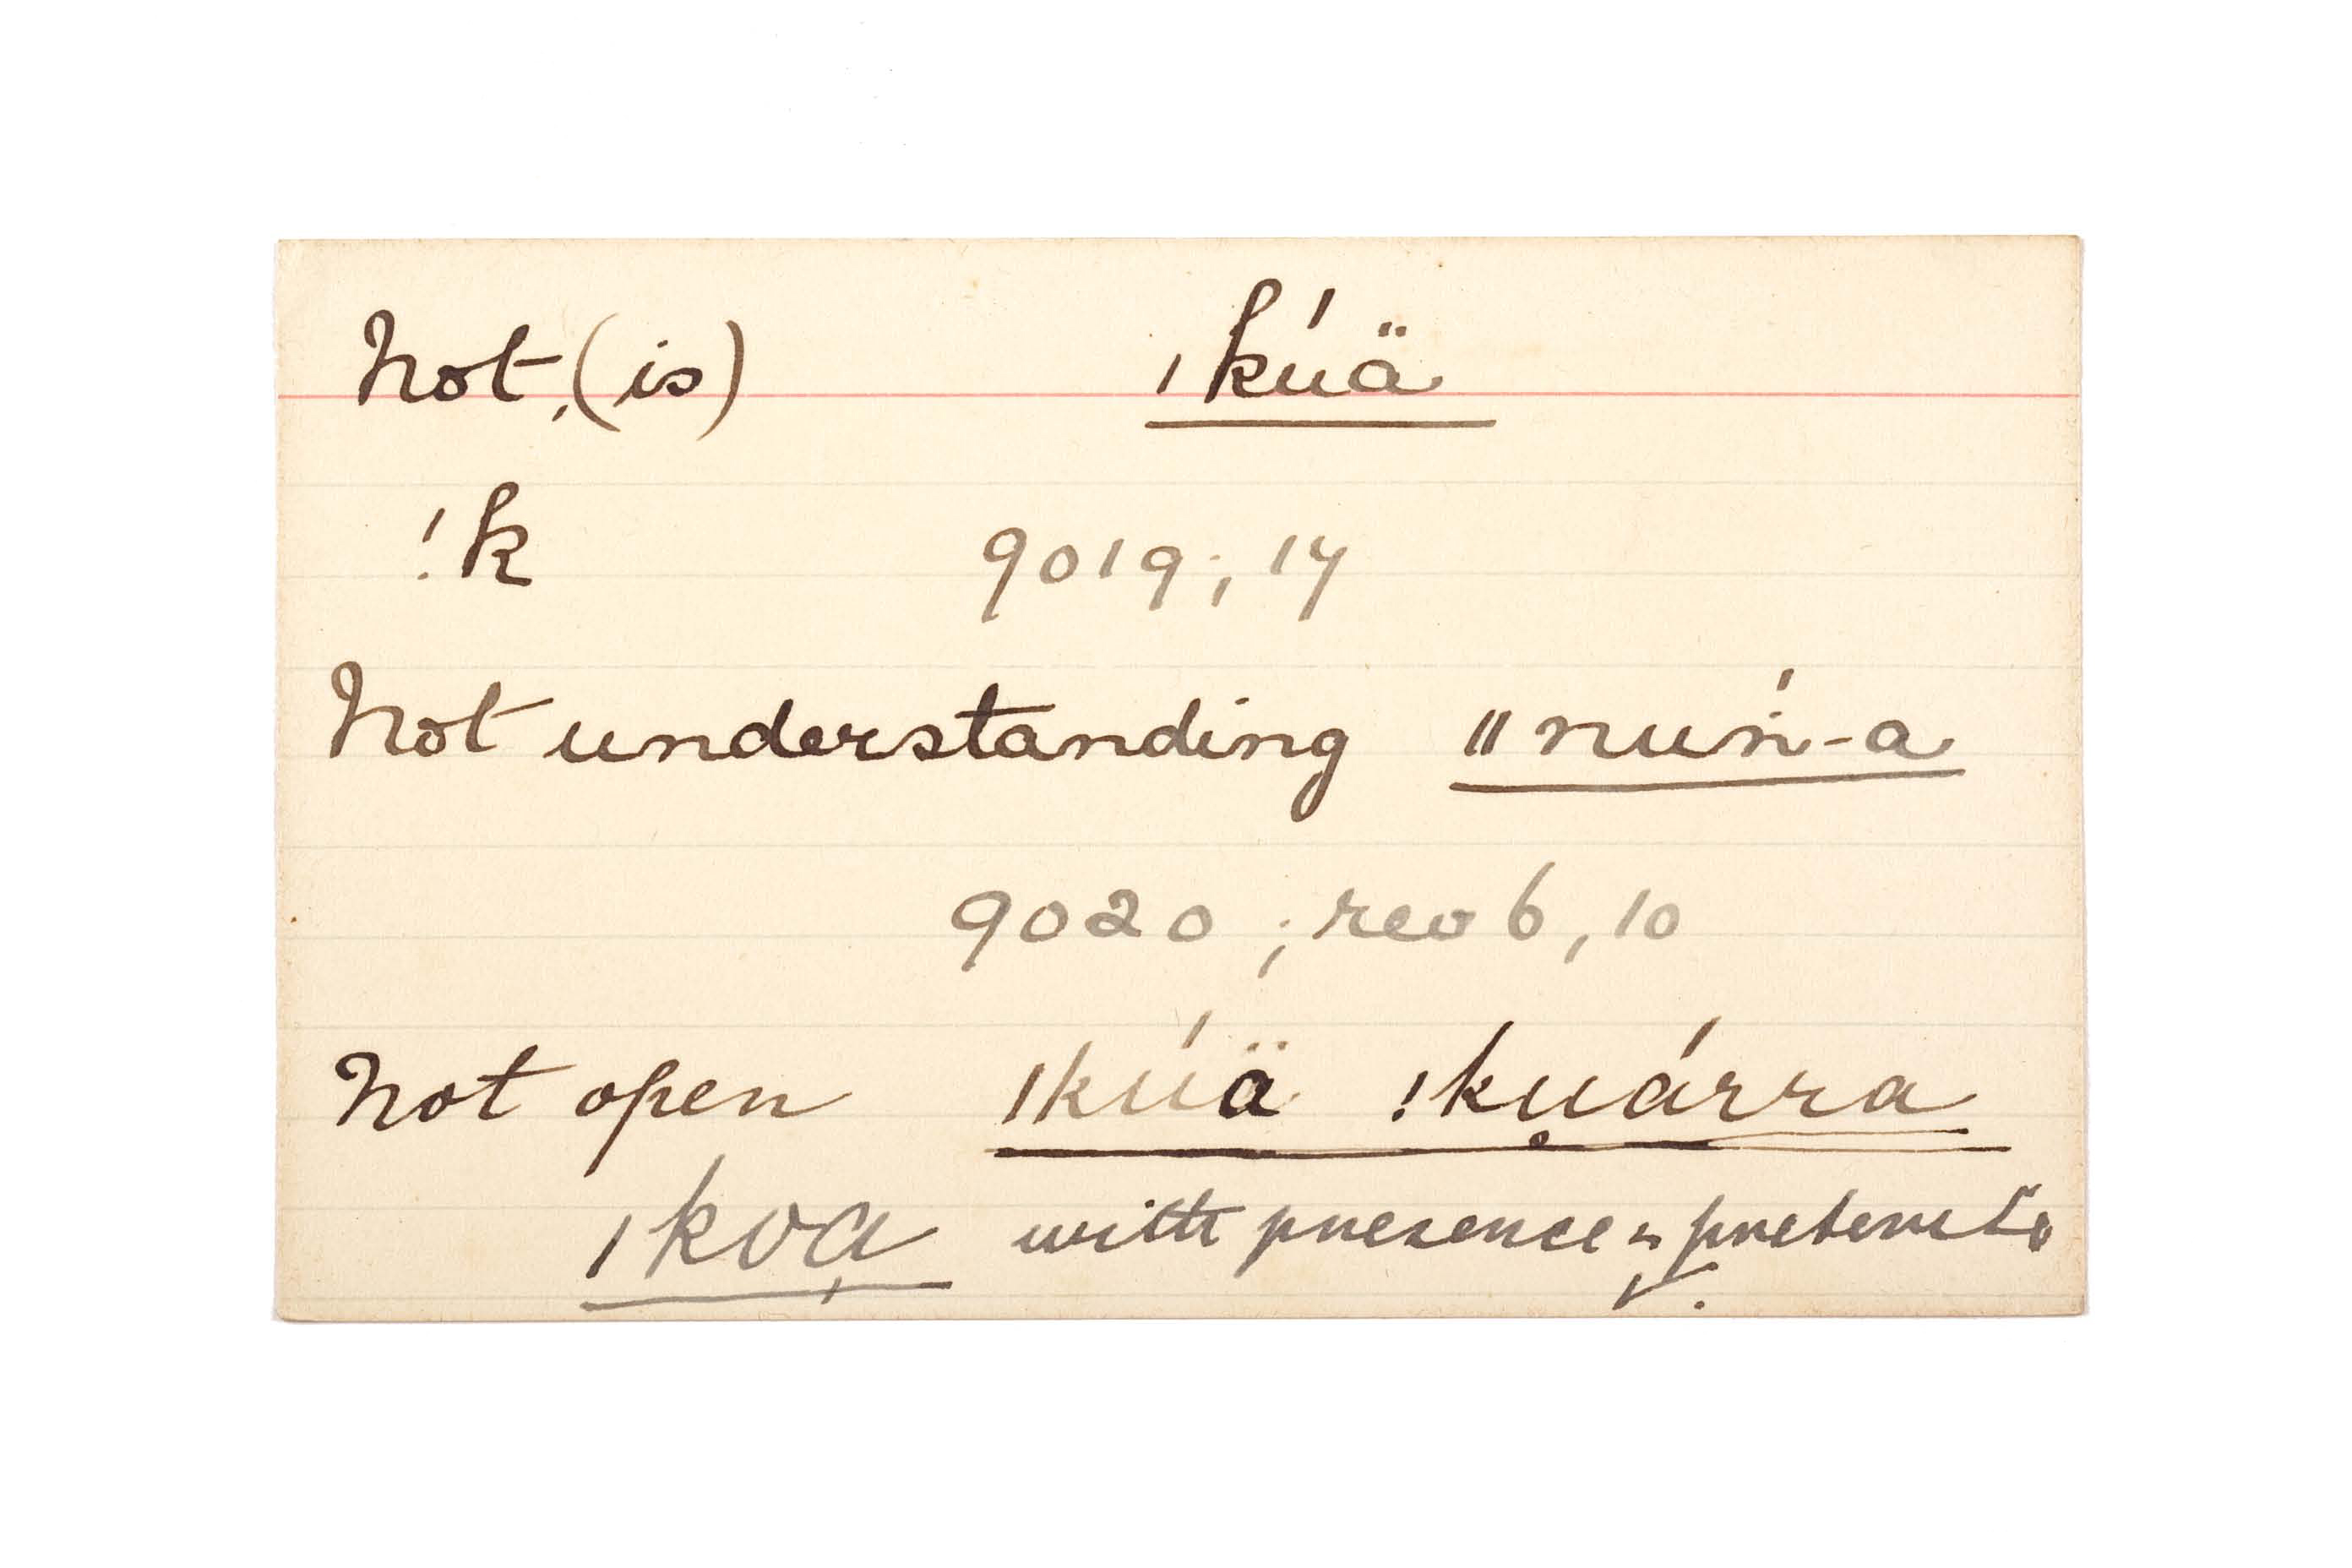 Not, (is) ǀkúä
!k 9019; 17
Not understanding ǁnuṅ́-a
9020; rev 6, 10
Not open ǀkúä !kụárra
ǀkoą with presence &